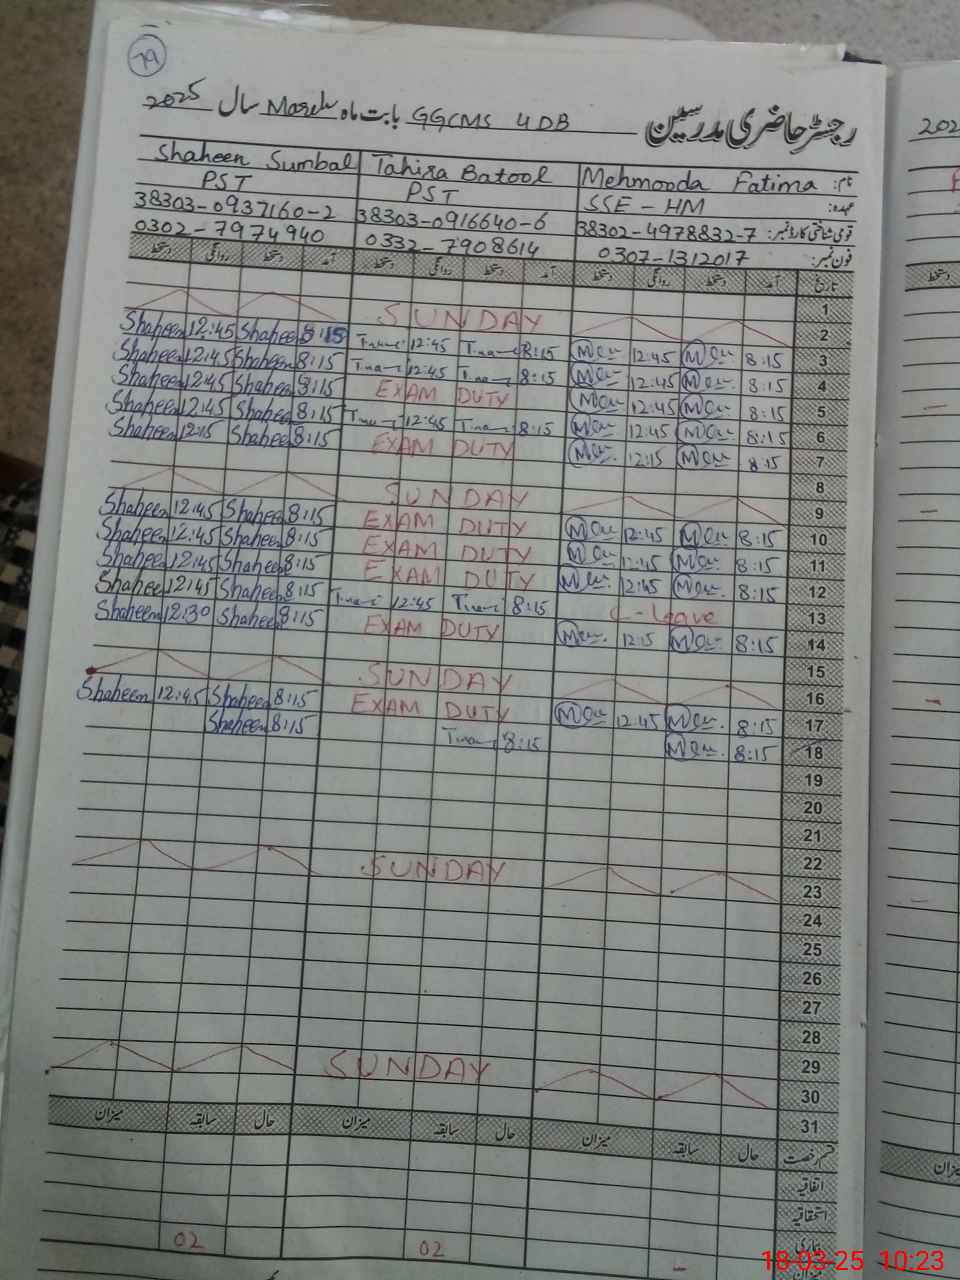 79
رجسٹر حاضری مدرسین GGCMS 4DB بابت ماہ March سال 2025
نام: Mehmooda Fatima Tahira Batool Shaheen Sumbal
عہدہ: SSE - HM PST PST
قومی شناختی کارڈ نمبر: 38302-4978832-7 38303-0916640-6 38303-0937160-2
فون نمبر: 0307-1312017 0332-7908614 0302-7974940
تاریخ آمد دستخط روانگی دستخط آمد دستخط روانگی دستخط آمد دستخط روانگی دستخط
1
2 SUNDAY
3 8:15 12:45 8:15 12:45 8:15 Shaheen 12:45 Shaheen
4 8:15 12:45 8:15 12:45 8:15 Shaheen 12:45 Shaheen
5 8:15 12:45 EXAM DUTY 8:15 Shaheen 12:45 Shaheen
6 8:15 12:45 8:15 12:45 8:15 Shaheen 12:45 Shaheen
7 8:15 12:15 EXAM DUTY 8:15 Shaheen 12:15 Shaheen
8
9 SUNDAY
10 8:15 12:45 EXAM DUTY 8:15 Shaheen 12:45 Shaheen
11 8:15 12:45 EXAM DUTY 8:15 Shaheen 12:45 Shaheen
12 8:15 12:45 EXAM DUTY 8:15 Shaheen 12:45 Shaheen
13 C-Leave 8:15 12:45 8:15 Shaheen 12:45 Shaheen
14 8:15 12:15 EXAM DUTY 8:15 Shaheen 12:30 Shaheen
15
16 SUNDAY
17 8:15 12:45 EXAM DUTY 8:15 Shaheen 12:45 Shaheen
18 8:15 8:15 8:15 Shaheen
19
20
21
22
23 SUNDAY
24
25
26
27
28
29
30 SUNDAY
31
قسم رخصت حال سابقہ میزان حال سابقہ میزان حال سابقہ میزان
اتفاقیہ
استحقاقیہ
بیماری 02 02
میزان
18-03-25 10:23